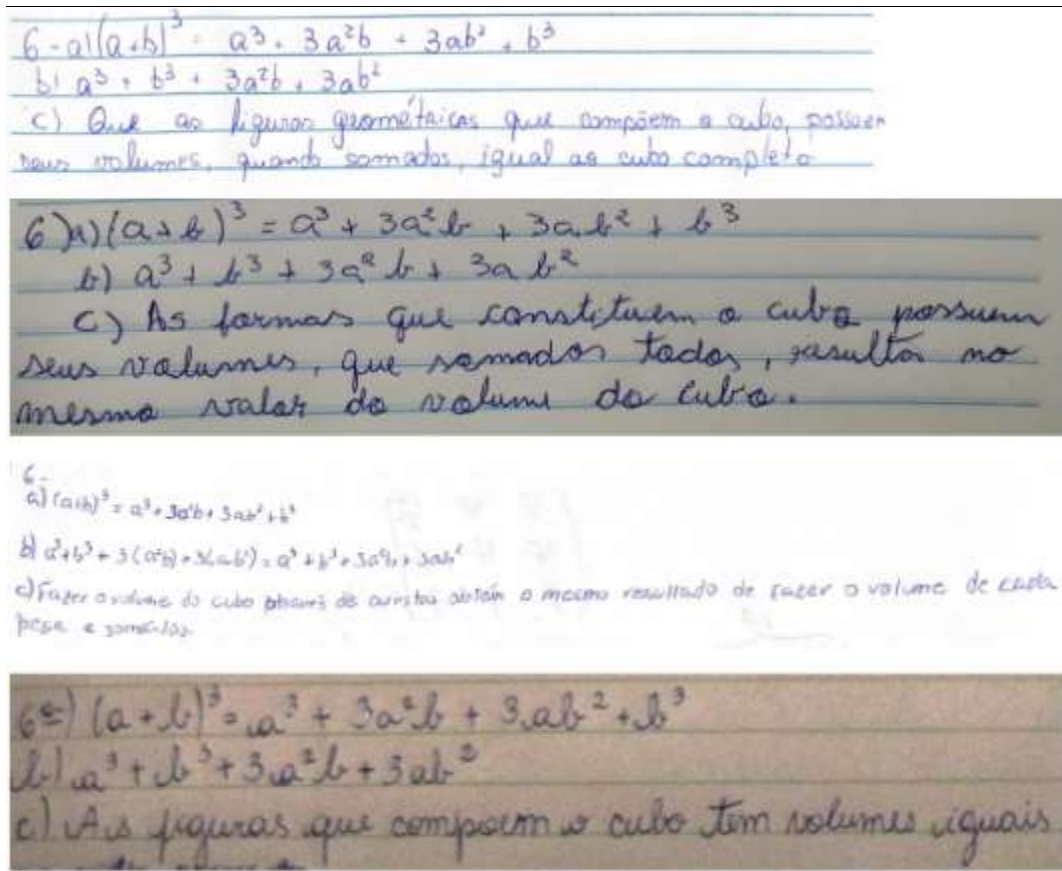 6-a) (a+b)³ = a³ + 3a²b + 3ab² + b³
b) a³ + b³ + 3a²b + 3ab²
c) Que as figuras geométricas que compõem o cubo, possuem
seus volumes, quando somados, igual ao cubo completo
6) a) (a+b)³ = a³ + 3a²b + 3ab² + b³
b) a³ + b³ + 3a²b + 3ab²
c) As formas que constituem o cubo possuem
seus volumes, que somados todos, resulta no
mesmo valor do volume do cubo.
6-
a) (a+b)³ = a³ + 3a²b + 3ab² + b³
b) a³+b³ + 3(a²b) + 3(ab²) = a³ + b³ + 3a²b + 3ab²
c) Fazer o volume do cubo de obtém o mesmo resultado de fazer o volume de cada
e
6a) (a+b)³ = a³ + 3a²b + 3ab² + b³
b) a³ + b³ + 3a²b + 3ab²
c) As figuras que compoem o cubo tem volumes iguais